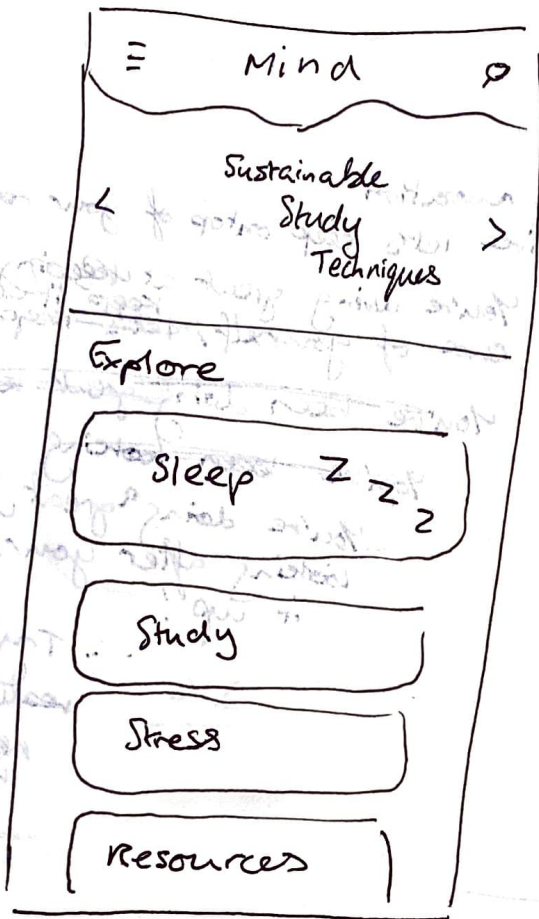 Mind
<
Sustainable
Study
Techniques
>
Explore
Sleep Z Z Z
Study
Stress
Resources